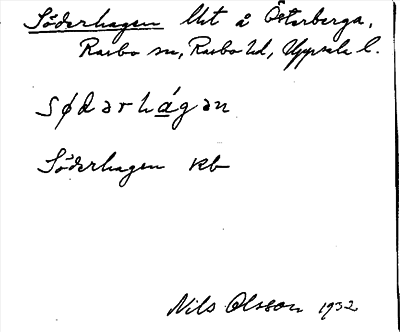 Söderhagen lht å Österberga,
Rasbo sn, Rasbo hd, Uppsala l.
sǿdərhágən
Söderhagen kb
Nils Olsson 1932